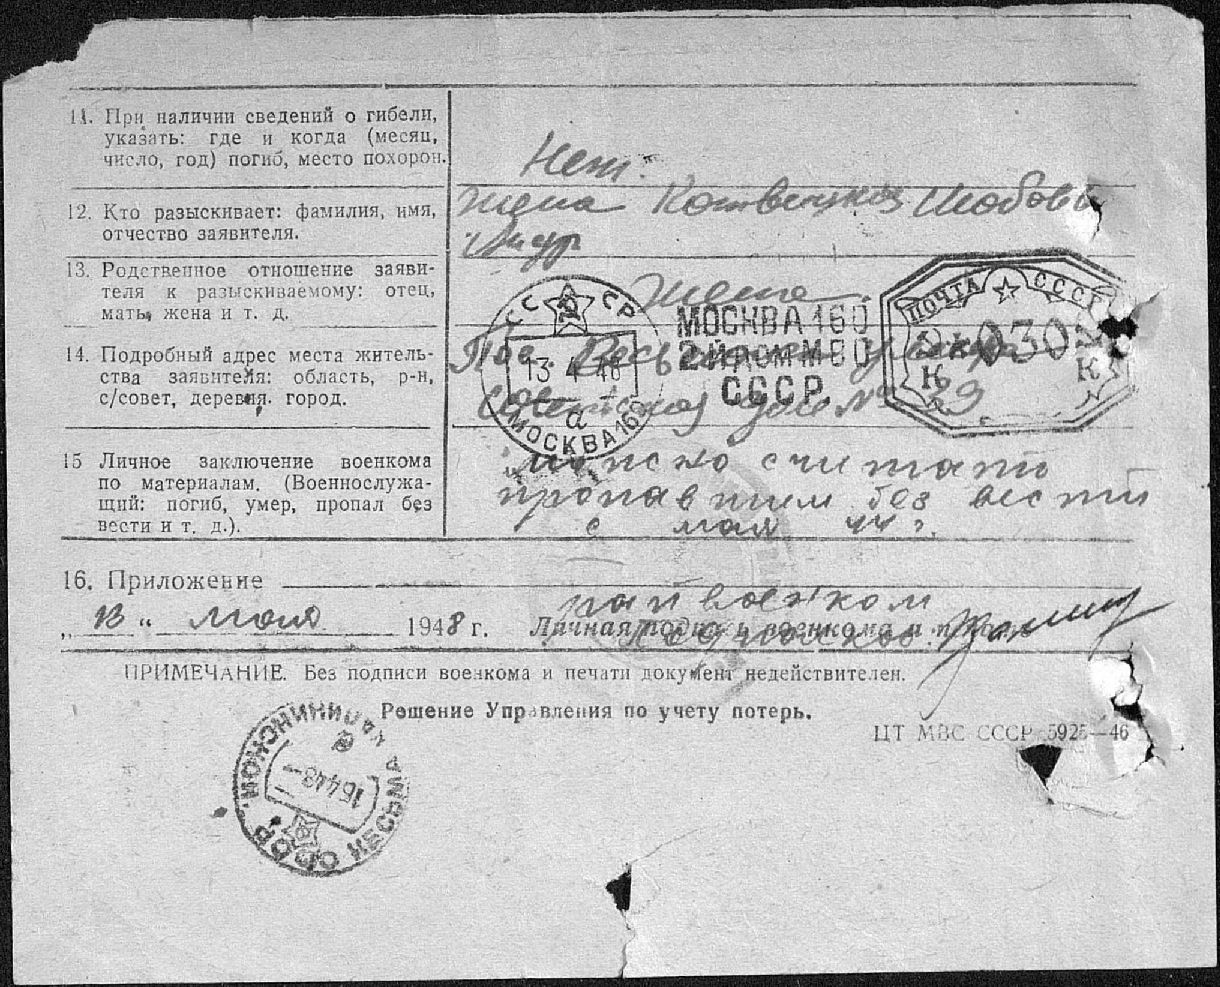 11. При наличии сведений о гибели,
указать: где и когда (месяц,
число, год) погиб, место похорон.
Нет.
12. Кто разыскивает: фамилия, имя,
отчество заявителя.
Жена
13. Родственное отношение заяви-
теля к разыскиваемому: отец,
мать, жена и т. д.
Жена
14. Подробный адрес места житель-
ства заявителя: область, р-н,
с/совет, деревня, город.
Пос.
Советская дом № 29
15 Личное заключение военкома
по материалам. (Военнослужа-
щий: погиб, умер, пропал без
вести и т. д.).
считать
пропавшим без вести
с мая 44 г.
СССР
13 4 48
а
МОСКВА 160
МОСКВА 160
СССР
ПОЧТА СССР
030
К К
16. Приложение
„13“ мая 1948 г. Личная подпись военкома и печать
райвоенком
ПРИМЕЧАНИЕ. Без подписи военкома и печати документ недействителен.
Решение Управления по учету потерь.
ЦТ МВС СССР 5925—46
КЕСЬМА КАЛИНИНСКОЙ
16448